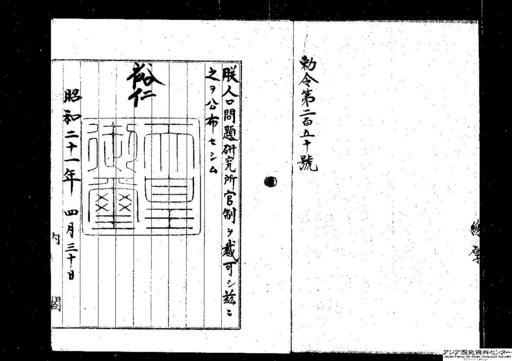 勅令第二百五十號
朕人口問題研究所官制ヲ裁可シ茲ニ
之ヲ公布セシム
裕仁
天皇御璽
昭和二十一年四月三十日
内閣
アジア歴史資料センター